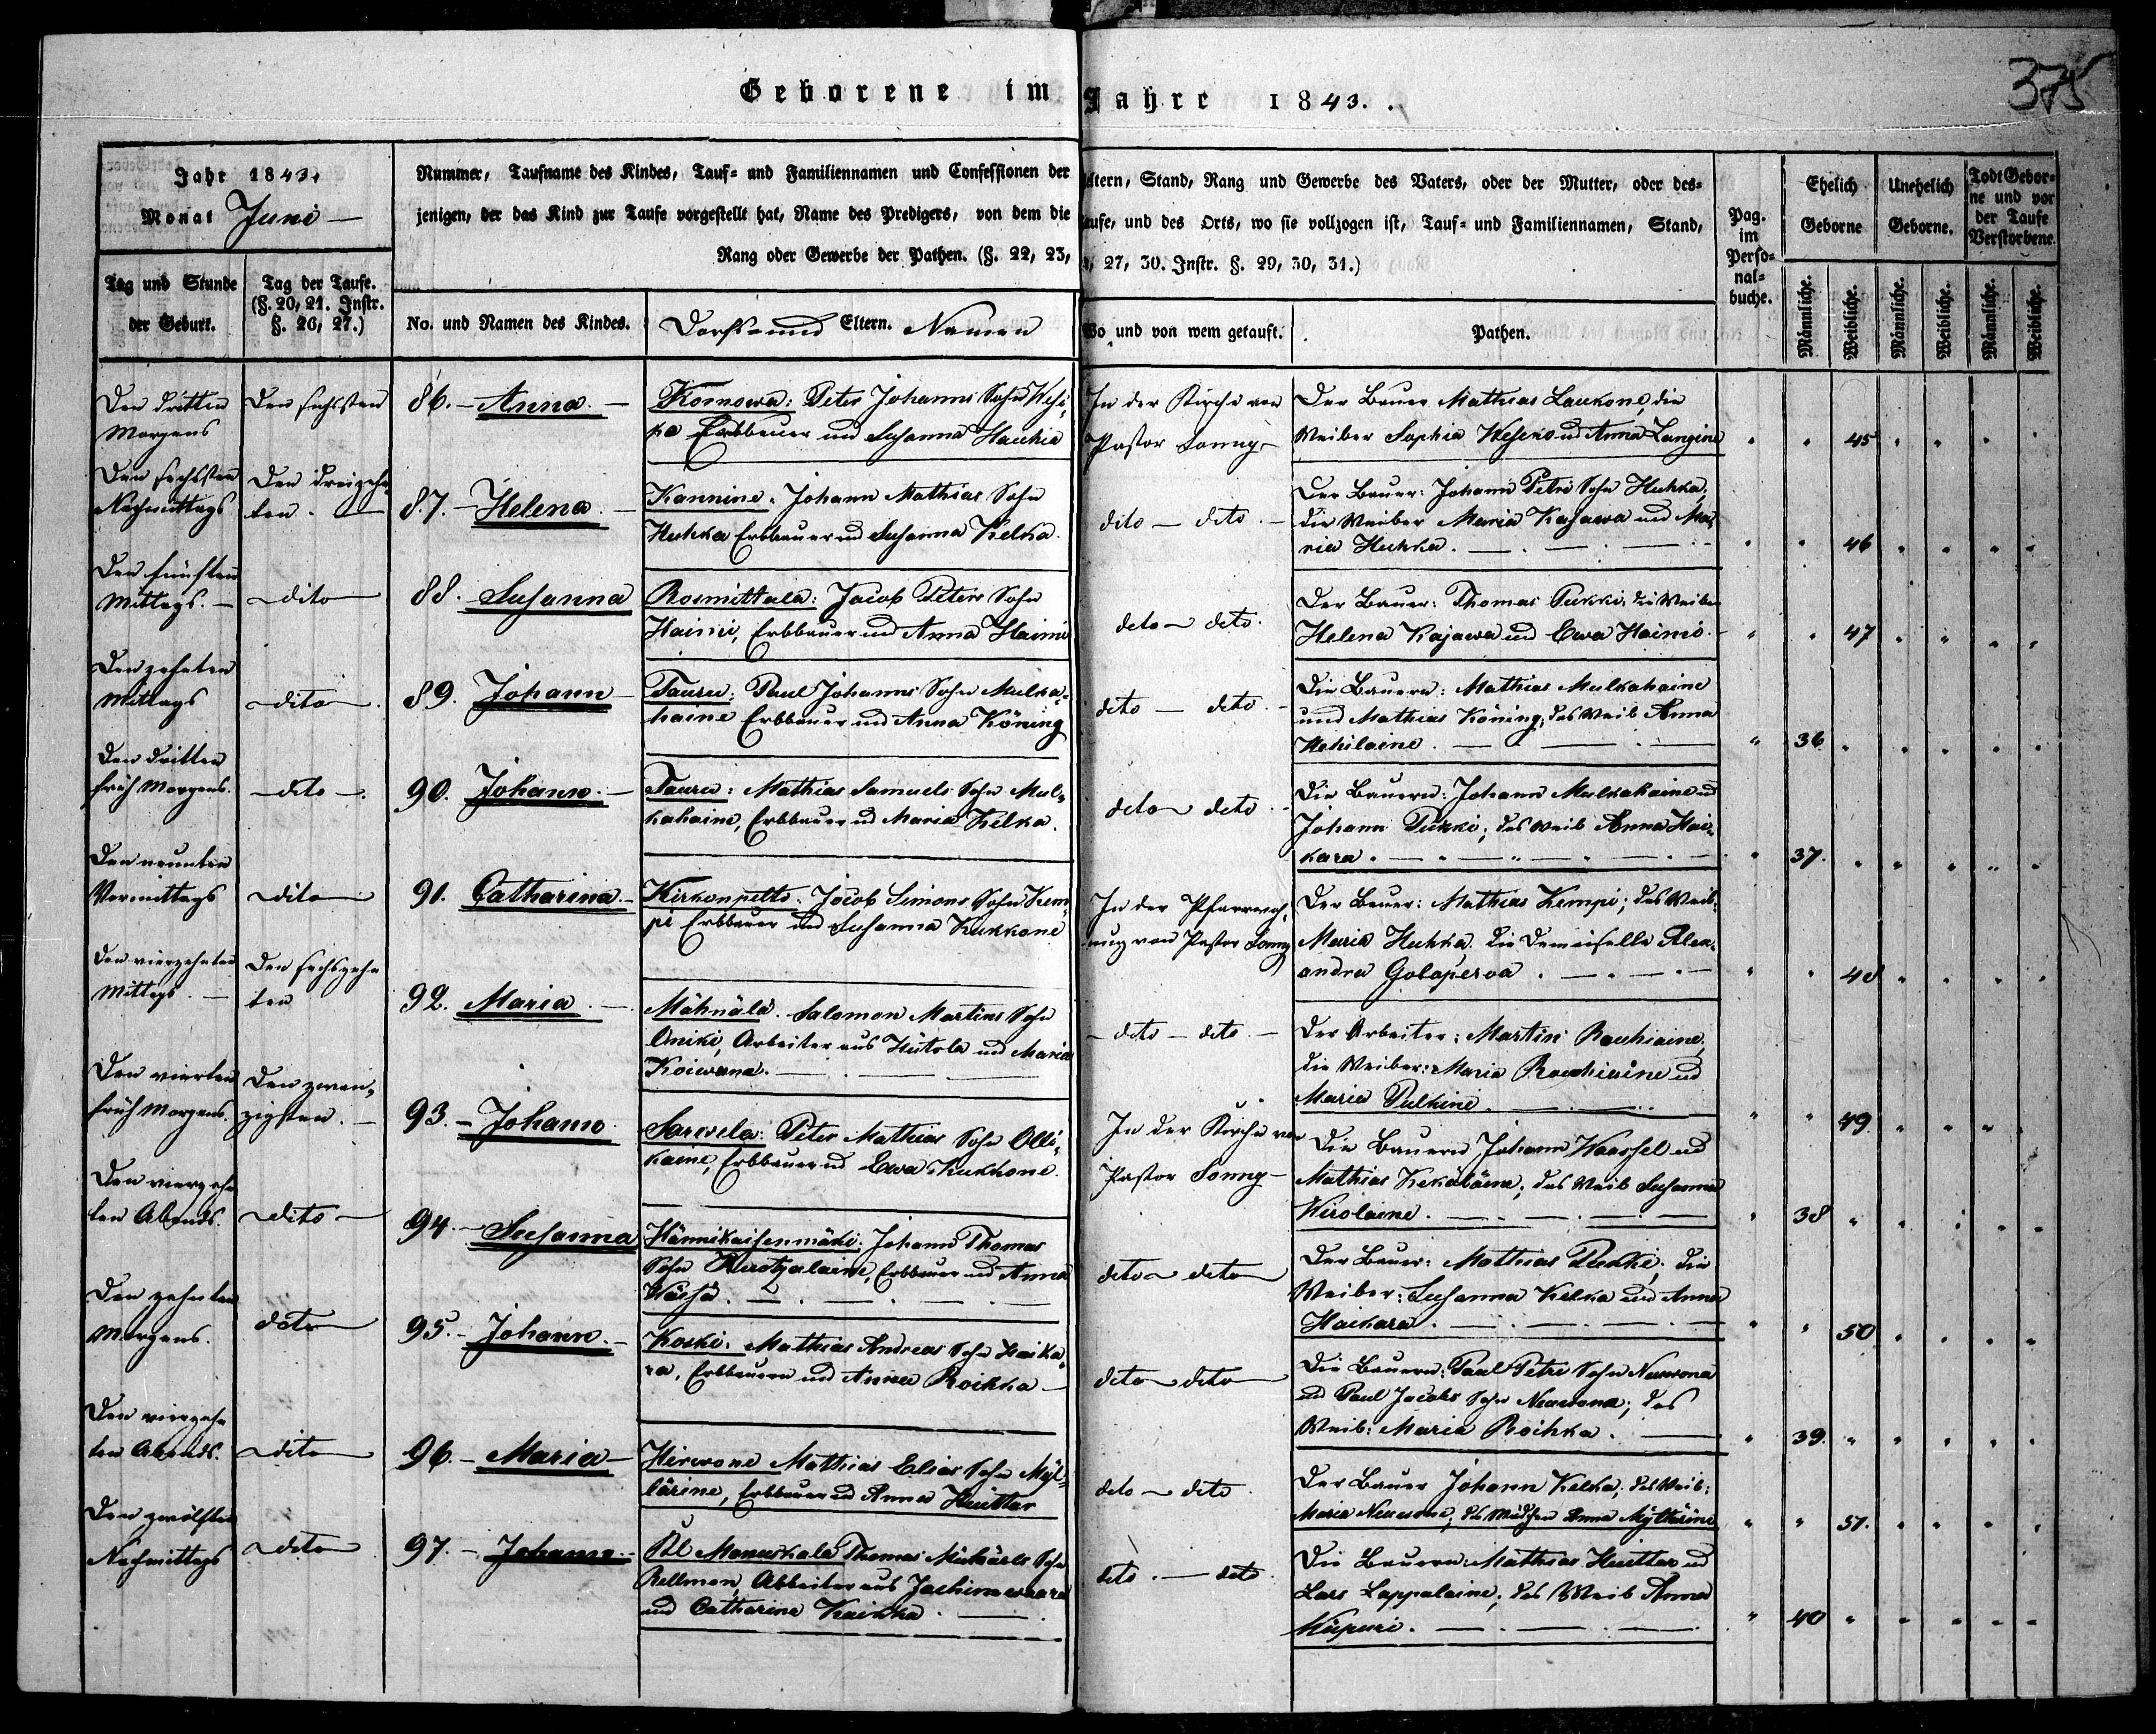 375
Geborene im Jahre 1843.
Jahr 1843.
Monat Juni
Nummer, Taufname des Kindes, Tauf- und Familiennamen und Confessionen der
jenigen, der das Kind zur Taufe vorgestellt hat, Name des Predigers, von dem die
Rang oder Gewerbe der Pathen. (§. 22, 23,
Eltern, Stand, Rang und Gewerbe des Vaters, oder der Mutter, oder des-
Taufe, und des Orts, wo sie vollzogen ist, Tauf- und Familiennamen, Stand,
27, 30. Instr. §. 29, 30, 31.)
Pag. im Perso-nal-buche.
Ehelich Geborne
Unehelich Geborne.
Todt Gebor-ne und vor der Taufe Verstorbene.
Tag und Stunde der Geburt.
Tag der Taufe. (§. 20, 21. Instr. §. 26, 27.)
No. und Namen des Kindes.
Dorfs- und Eltern. Namen
Wo und von wem getauft.
Pathen.
Männliche.
Weibliche.
Männliche.
Weibliche.
Männliche.
Weibliche.
Den dritten Morgens
Den sechsten
86. Anna
Komowa: Peter Johanns Sohn Wesi-
ko Erbbauer und Susanna Haukia
In der Kirche von
Pastor Sonny
Der Bauer Mathias Laukone, die
Weiber Sophia Wesiko und Anna Langine
45
Den sechsten Nachmittags
Den dreizehn-ten
87. Helena
Kannine. Johann Mathias Sohn
Huhka Erbbauer und Susanna Kelka.
dito dito
Der Bauer: Johann Petri Sohn Huhka,
die Weiber Maria Kajawa und Ma-
ria Huhka.
46
Den fünften Mittags.
dito
88. Susanna
Rosmittala: Jacob Peters Sohn
Haimi, Erbbauer und Anna Haimi
dito dito.
Der Bauer: Thomas Pukki, die Weiber
Helena Kajawa und Ewa Haimi.
47
Den zehnten Mittags
dito
89. Johann
Tauru: Paul Johanns Sohn Mulka-
haine Erbbauer und Anna Köning
dito dito.
Die Bauern: Mathias Mulkahaine
und Mathias Köning, das Weib Anna
36
Den dritten früh Morgens.
dito
90. Johann
Tauru: Mathias Samuels Sohn Mul-
kahaine, Erbbauer und Maria Kelka.
dito dito
Die Bauern: Johann Mulkahaine und
Johann Pukki; das Weib Anna Hai-
kara.
37.
Den neunten Vormittags
dito
91. Catharina
Kirkonpelto. Jacob Simons Sohn Kem-
pi Erbbauer und Susanna Kukkone
In der Pfarrwoh-
nung von Pastor Sonny
Der Bauer: Mathias Kempi; das Weib
Maria Huhka. Die Demoiselle Alex-
andra
48
Den vierzehnten Mittags.
Den sechszehn ten
92. Maria
Mähnälä. Salomon Martins Sohn
Arbeiter aus Hütola und Maria
dito dito.
Der Arbeiter: Martin Rauhiaine,
die Weiber: Maria Rauhiaine und
Maria Pulkine.
49
Den vierten früh Morgens.
Den zwan-zigsten.
93. Johann
Sarwela: Peter Mathias Sohn Olli-
kaine, Erbbauer und Ewa Kukkone.
In der Kirche von
Pastor Sonny
Die Bauern Johann Waassel und
Mathias Kekäläine; das Weib Susanna
Kirolaine.
38
Den vierzehn ten Abends.
dito
94. Susanna
Hännikaisenmäki. Johann Thomas
Sohn Erbbauer und Anna
dito dito
Der Bauer: Mathias Pukki; die
Weiber: Susanna Kelka und Anna
Haikara.
50
Den zehnten Morgens.
dito
95. Johann.
Koski: Mathias Andreas Sohn Haika-
ra, Erbbauern und Anna Roikka
dito dito
Die Bauern: Paul Petri Sohn Neuwona
und Paul Jacobs Sohn Neuwona; das
Weib: Maria Roikka.
39.
Den vierzehn ten Abends.
dito
96. Maria
Hirwone Mathias Elias Sohn Myl-
lärine, Erbbauer und Anna Huittar
dito dito
Der Bauer Johann Kelka, das Weib:
Maria Neuwona; das Mädchen Anna Myllärine
51.
Den zwölften Nachmittags
dito
97. Johann.
Kl Manuskala Thomas Michaels Sohn
Rellman, Arbeiter aus Jachimawaara
und Catharina Kaikka.
dito. dito.
Die Bauern Mathias Huittar und
Lars Lappalaine, das Weib Anna
Kispuri.
40